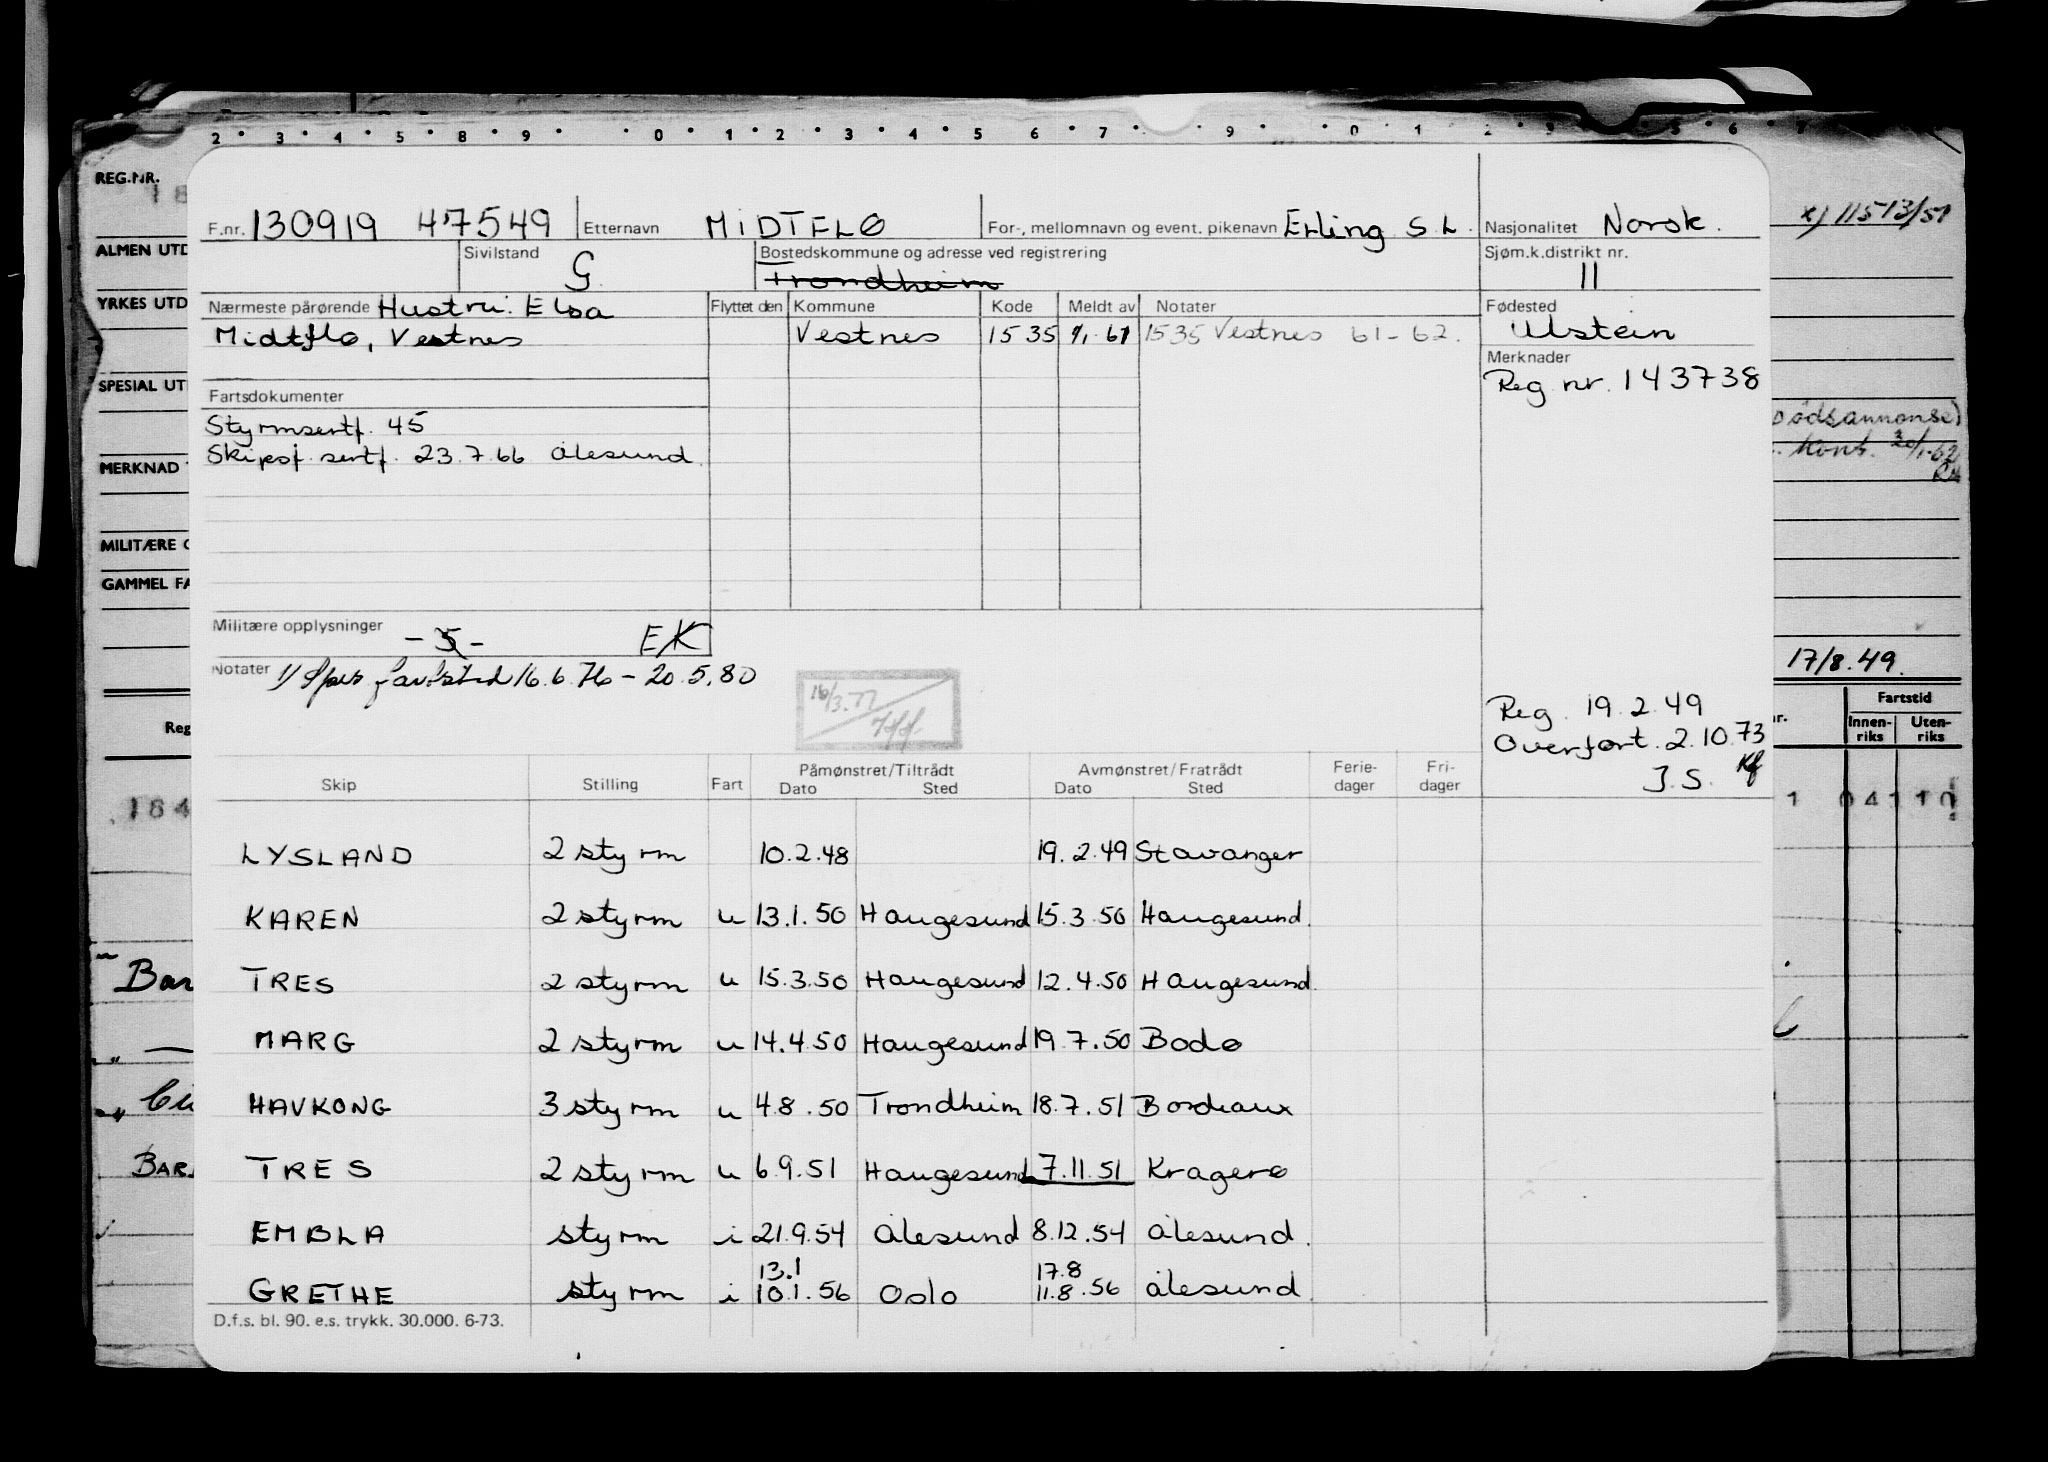 2 · 3 · 4 · 5 · 8 · 9 · · 0 · 1 · 2 · 3 · 4 · 5 6 · 7 · 9 · 0 1 2 5 6
REG.NR.
18
x) 11513/51
F.nr. 130919 47549 Etternavn MIDTFLØ For-, mellomnavn og event. pikenavn Erling S.L. Nasjonalitet Norsk.
ALMEN UTD
Sivilstand G Bostedskommune og adresse ved registrering Trondheim Sjøm.k.distrikt nr. 11
YRKES UTD
Nærmeste pårørende Hustru: Elsa Flyttet den Kommune Kode Meldt av Notater Fødested
Midtflø, Vestnes Vestnes 1535 1/1-61 1535 Vestnes 61-62. Ulstein
Merknader
SPESIAL UT
Reg nr. 143738
Fartsdokumenter
Dødsannonse)
Styrmsertf. 45
Skipsf. sertf. 23.7.66 Ålesund.
MERKNAD
Kont. 30/1-62
MILITÆRE
GAMMEL FA
Militære opplysninger -5- EK
17/8.49.
Notater 1) Spes fartstid 16.6.76 - 20.5.80
16/3.77
Reg. 19.2.49
Overført. 2.10.73
J.S. Kf
Reg
nr. Fartstid
Innen-riks Uten-riks
Skip Stilling Fart Påmønstret/Tiltrådt Avmønstret/Fratrådt Ferie-dager Fri-dager
Dato Sted Dato Sted
164
1 04110
LYSLAND 2 styrm 10.2.48 19.2.49 Stavanger
KAREN 2 styrm u 13.1.50 Haugesund 15.3.50 Haugesund.
Bar
TRES 2 styrm u 15.3.50 Haugesund 12.4.50 Haugesund.
MARG 2 styrm u 14.4.50 Haugesund 19.7.50 Bodø
HAVKONG 3 styrm u 4.8.50 Trondheim 18.7.51 Bordeaux
BAR
TRES 2 styrm u 6.9.51 Haugesund 7.11.51 Kragerø
EMBLA styrm i 21.9.54 Ålesund 8.12.54 Ålesund.
13.1 17.8
GRETHE styrm i 10.1.56 Oslo 11.8.56 Ålesund
D.f.s. bl. 90. e.s. trykk. 30.000. 6-73.